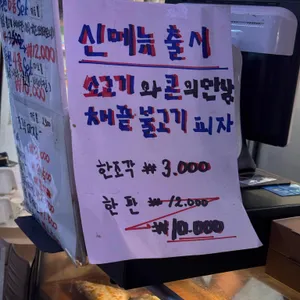 신메뉴 출시
소고기 와 콘의 만남
채끝 불고기 피자
한조각 ₩ 3.000
한판 ₩ 12.000
₩10.000
₩12,000